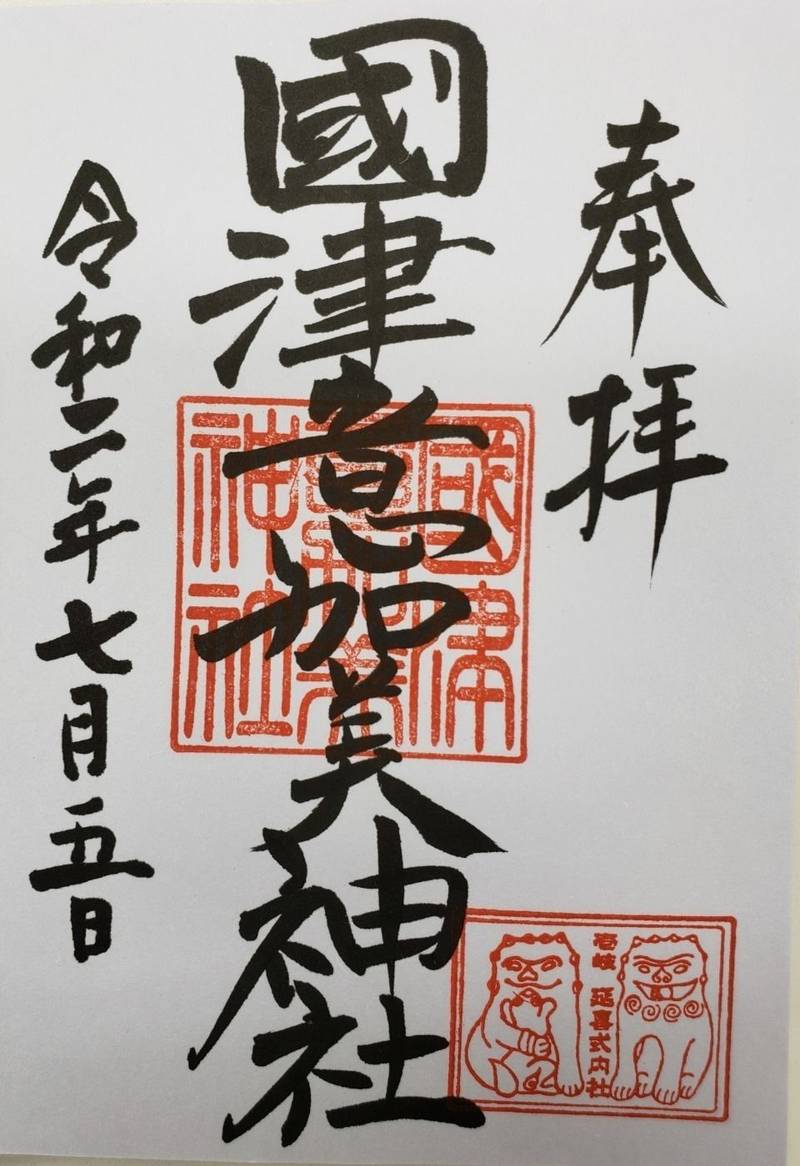 奉拝
國津意加美神社
國津意加美神社
壱岐 延喜式内社
令和二年七月五日